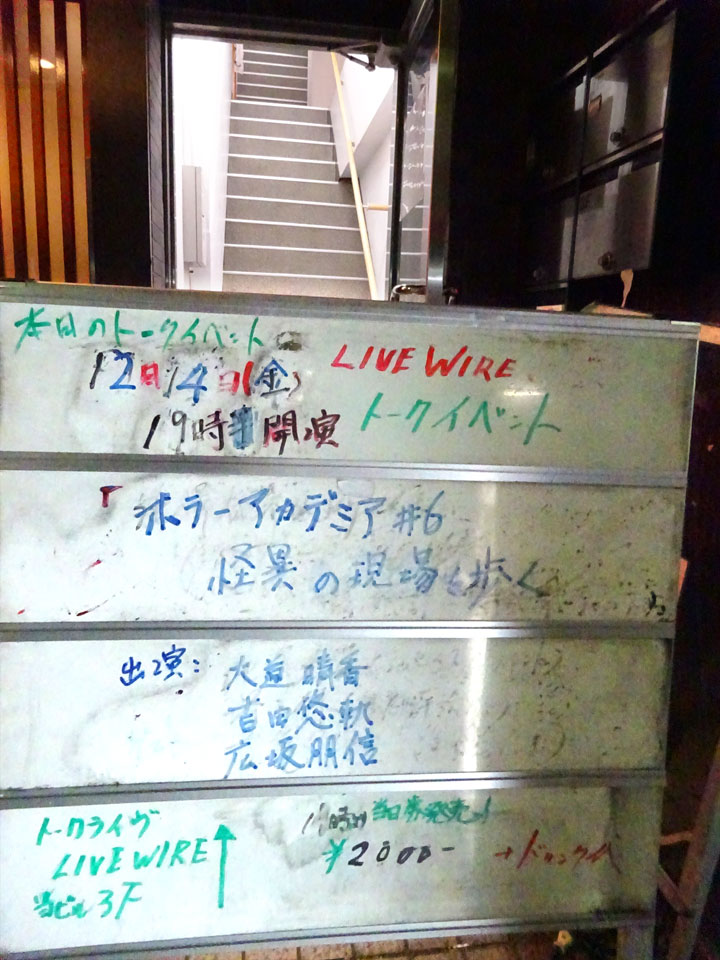 本日のトークイベント
12月14日(金)
LIVE WIRE
19時 開演
トークイベント
「ホラーアカデミア#6
怪異の現場を歩く
出演:
大道晴香
吉田悠軌
広坂朋信
トークライヴ
LIVE WIRE
当ビル3F
当日券発売
¥2000-
+ドリンク代